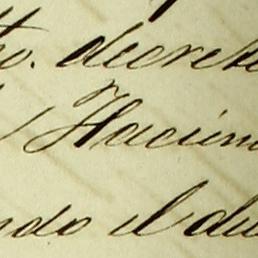 to. decret
Hacien
ndo el du